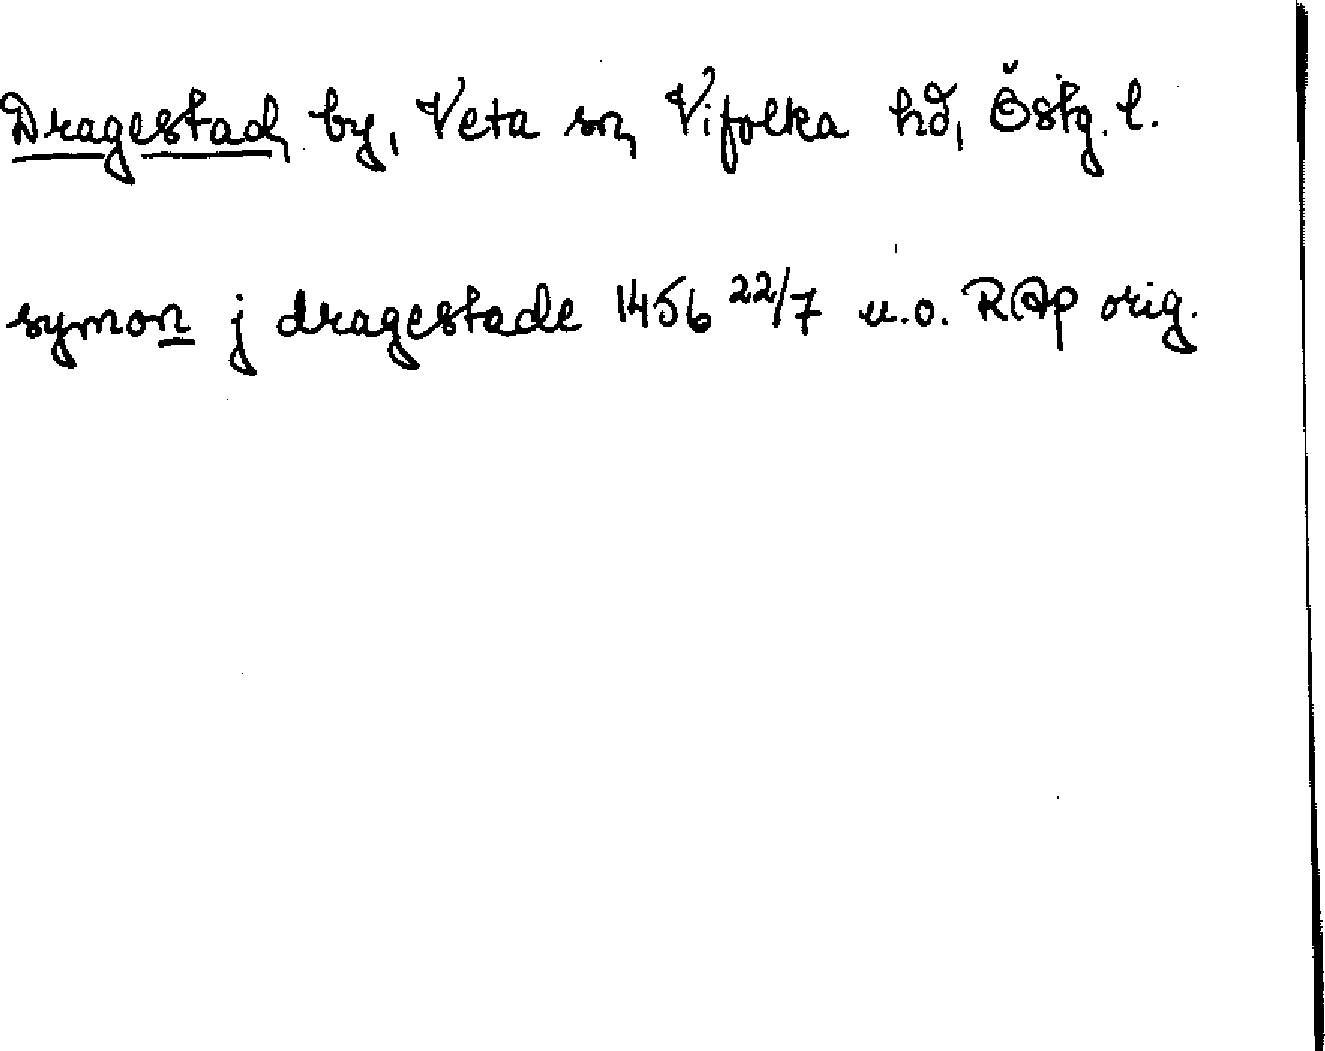 Dragestad, by, Veta sn, Vifolka hd, Östg. l.
symon j dragestade 1456 22/7 u.o. RAp orig.